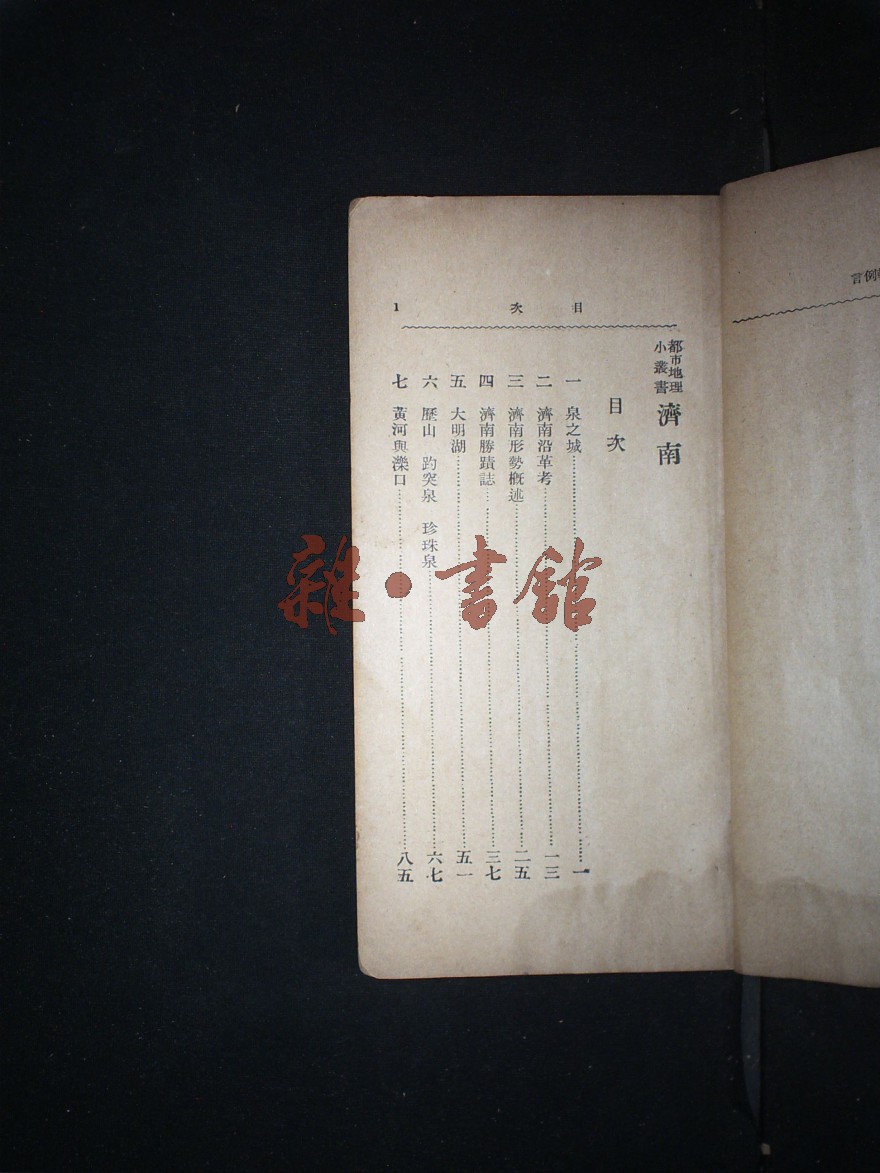 例言
目次 1
都市地理小叢書 濟南
目次
一 泉之城 一
二 濟南沿革考 一三
三 濟南形勢概述 二五
四 濟南勝蹟誌 三七
五 大明湖 五一
六 歷山 趵突泉 珍珠泉 六七
七 黃河與濼口 八五
雜·書館